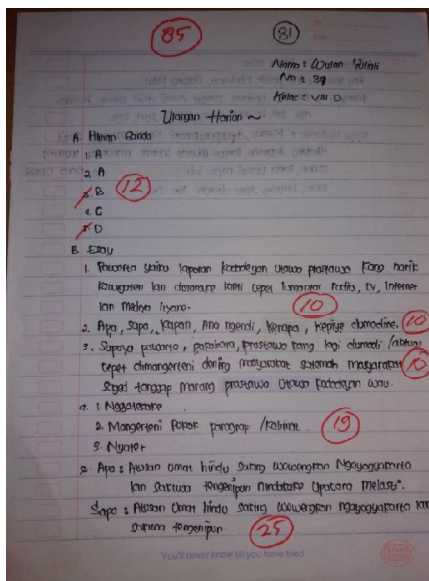 85
81
Nama : Wulan Yuliati
No : 39
Kelas : VIII D
Ulangan Harian ~
A. Pilihan Ganda
1. A
2. A
3. B
12
4. C
5. D
B. Esay
1. Pawarta yaiku laporan kadadeyan utawa prastawa kang narik
kawigaten lan disiarake kanti cepet lumantar radio, tv, internet
lan medya liyane.
10
2. Apa, sapa, kapan, Ana ngendi, kenapa, kepiye dumadine.
10
3. Supaya pawarta, pacabara, prastawa kang lagi dumadi / aktual
cepet dimangerteni dening masyarakat satemah masyarakat
10
segel tanggap marang prastawa utawa kadadeyan wau.
4. 1. Negatakake
2. Mangerteni Pokok paragraf / kalimat.
19
3. Nyatet
5. Apa : Atusan umat hindu saking wewengkon Ngayogyakarta
lan sakiwa tengenipun nindakake upacara melasti.
Sapa : Atusan umat hindu saking wewengkon ngayogyakarta lan
sakiwa tengenipun.
25
You'll never know till you have tried